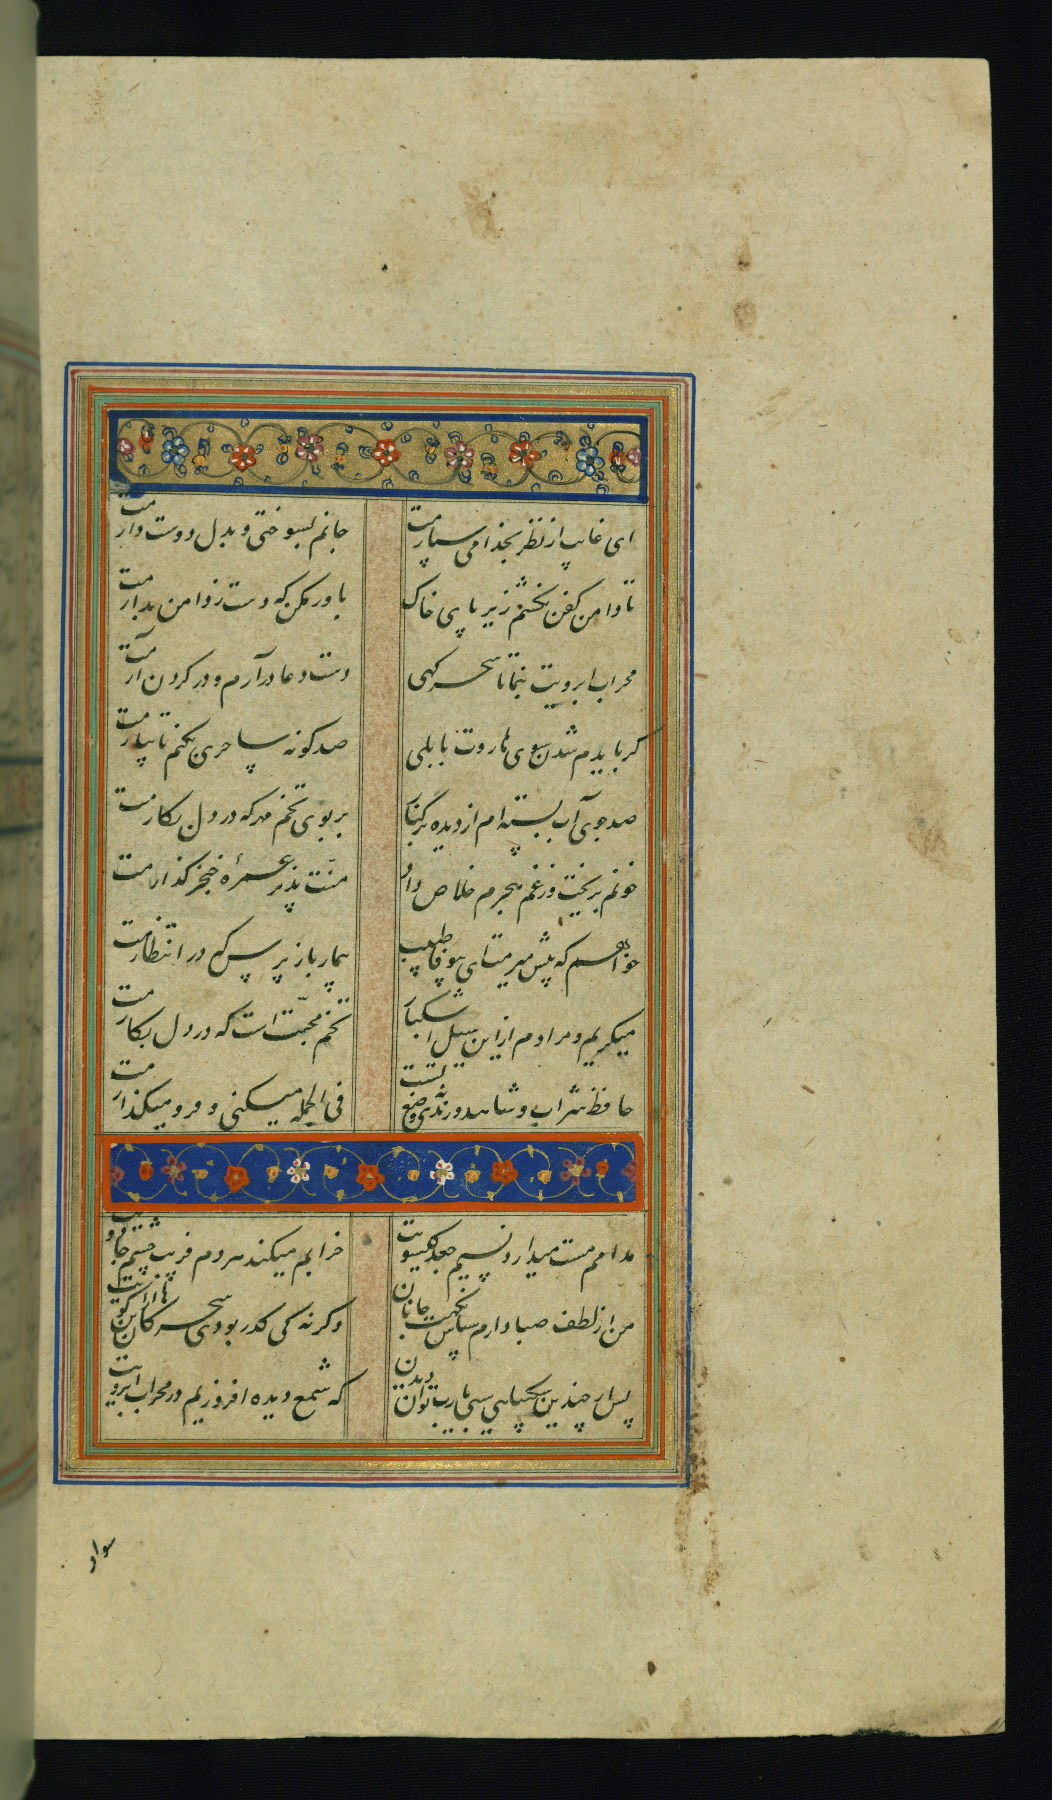 ای غایب از نظر بخدا می سپارمت جانم بسوختی و بدل دوست دارمت
تا دامن کفن نکشم زیر پای خاک باور مکن که دست ز دامن بدارمت
محراب ابرویت بنما تا سحرکهی دست دعا درآرم و در کردن آرمت
کر بایدم شدن سوی هاروت بابلی صد کونه ساحری بکنم تا بیارمت
صد جوی آب بسته ام از دیده بر کنار بر بوی تخم مهر که در دل بکارمت
خونم بریخت وز غم هجرم خلاص داد منت پذیر غمزهٔ خنجر کذارمت
خواهم که پیش میرمت ای بیوفا طبیب بیمار باز پرس که در انتظارمت
میکریم و مرادم از این سیل اشکبار تخم محبت است که در دل بکارمت
حافظ شراب و شاهد و رندی نه وضع تست فی الجمله میکنی و فرو میکذارمت
مدامم مست میدارد نسیم جعد کیسویت خرابم میکند هردم فریب چشم جادویت
من از لطف صبا دارم سپاس نکهت جانان وکرنه کی کذر بودی سحرکاهان از این کویت
پس از چندین شکیبایی شبی یارب توان دیدن که شمع دیده افروزیم در محراب ابرویت
سواد